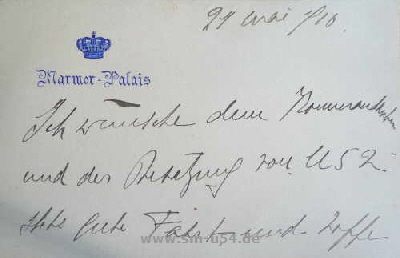 29 Mai /16
Marmor-Palais
Ich wünsche dem Kommandanten
und der Besatzung von U 52
gute Fahrt und hoffe
www.sm-u54.de